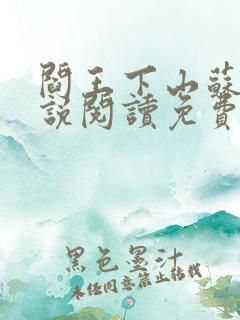 閻王下山蘇
說閱讀免費
黑色墨汁
未经同意禁止转载